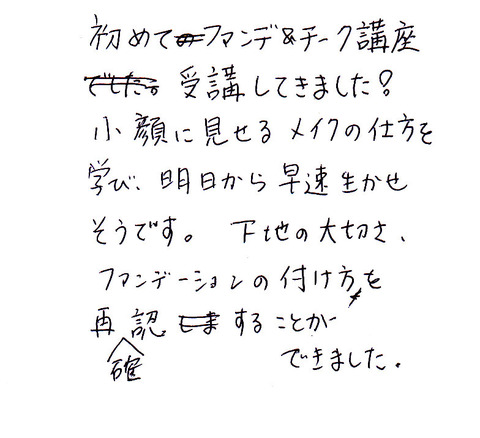 初めてのファンデ&チーク講座
でした。受講してきました!
小顔に見せるメイクの仕方を
学び、明日から早速生かせ
そうです。 下地の大切さ、
ファンデーションの付け方を
再確認しますることが
できました。